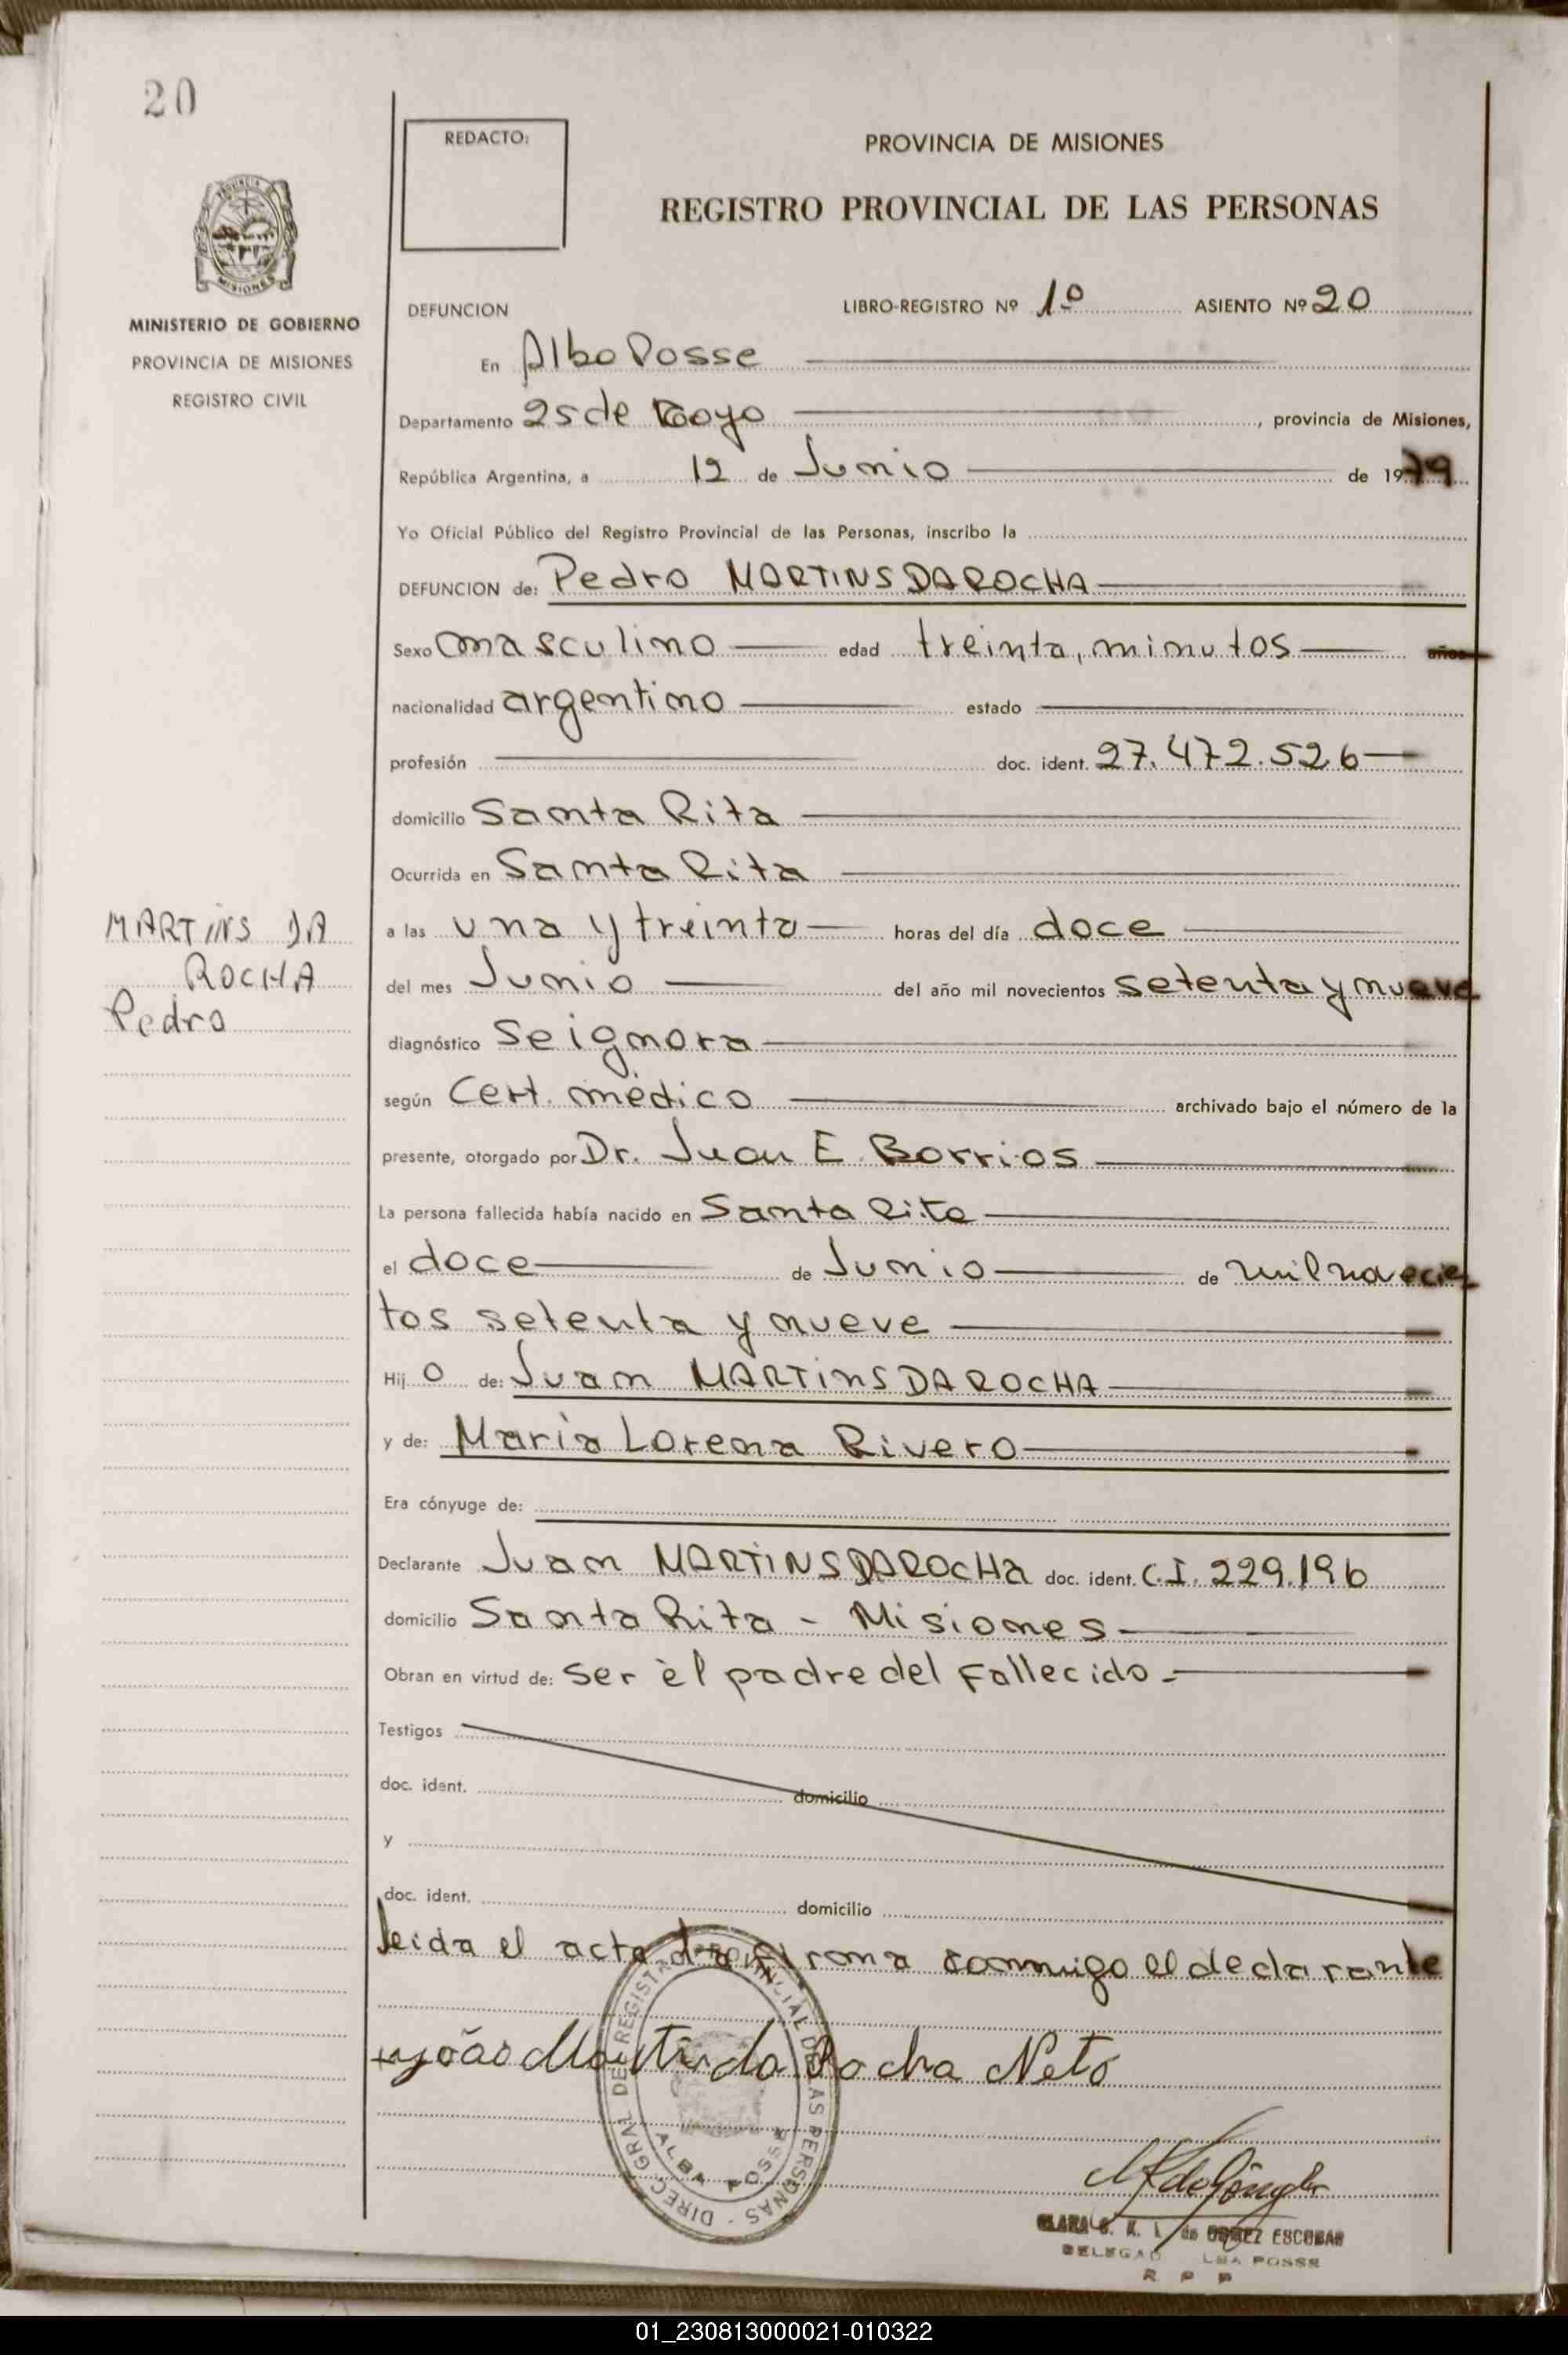 20
REDACTO:
PROVINCIA DE MISIONES
REGISTRO PROVINCIAL DE LAS PERSONAS
MISIONES
MINISTERIO DE GOBIERNO
PROVINCIA DE MISIONES
REGISTRO CIVIL
DEFUNCION LIBRO-REGISTRO Nº 1º ASIENTO Nº 20
En Alba Posse
Departamento 25 de Mayo, provincia de Misiones,
República Argentina, a 12 de Junio de 1979
Yo Oficial Público del Registro Provincial de las Personas, inscribo la
DEFUNCION de: Pedro MARTINS DA ROCHA
Sexo masculino edad treinta, minutos años
nacionalidad argentino estado
profesión doc. ident. 27.472.526
domicilio Santa Rita
Ocurrida en Santa Rita
MARTINS DA
ROCHA
Pedro
a las una y treinta horas del día doce
del mes Junio del año mil novecientos setenta y nueve
diagnóstico Se ignora
según Cert. médico archivado bajo el número de la
presente, otorgado por Dr. Juan E. Barrios
La persona fallecida había nacido en Santa Rita
el doce de Junio de mil novecien
tos setenta y nueve
Hij o de: Juan MARTINS DA ROCHA
y de: Maria Lorena Rivero
Era cónyuge de:
Declarante Juan MARTINS DA ROCHA doc. ident. C.I. 229.196
domicilio Santa Rita - Misiones
Obran en virtud de: ser èl padre del Fallecido.-
Testigos
doc. ident. domicilio
y
doc. ident. domicilio
leida el acta la firma conmigo el declarante
João Martins da Rocha Neto
DIREC. GRAL. DE REGISTRO PROVINCIAL DE LAS PERSONAS
ALBA POSSE
CLARA de GOMEZ ESCOBAR
DELEGAD ALBA POSSE
R P P
01_230813000021-010322